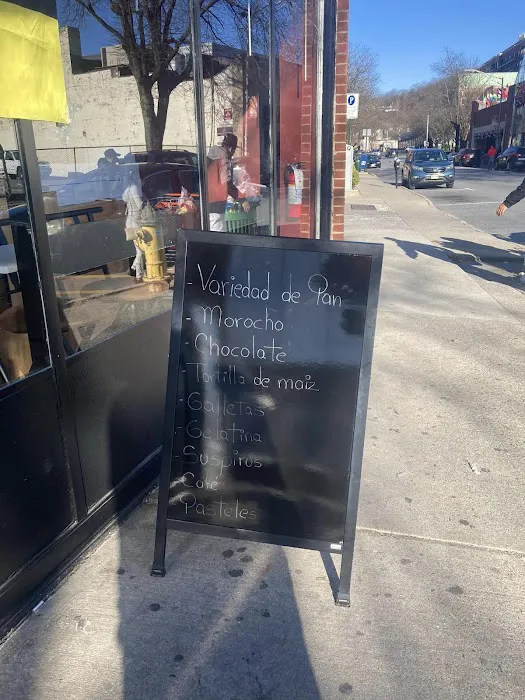 - Variedad de Pan
- Morocho
- Chocolate
- Tortilla de maiz
- Galletas
- Gelatina
- Suspiros
- Café
- Pasteles
P